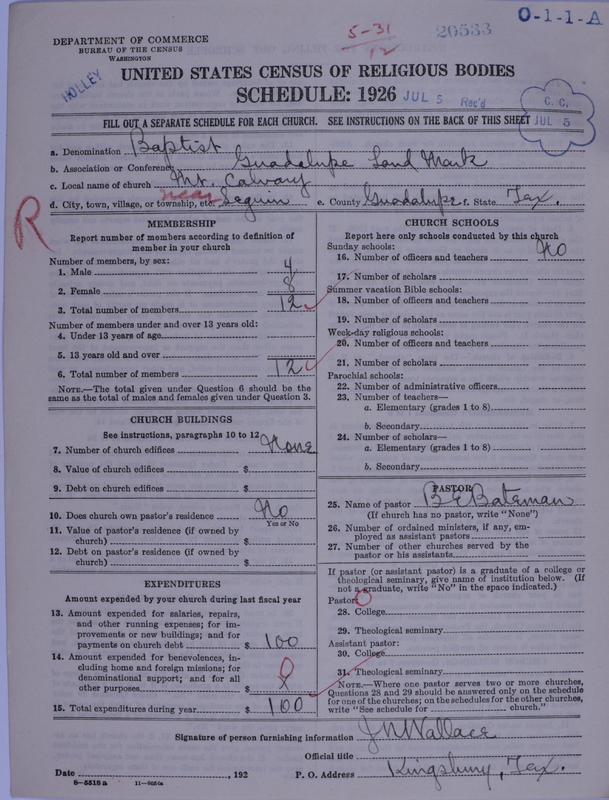 O-1-1-A
5-31
12
20533
DEPARTMENT OF COMMERCE
BUREAU OF THE CENSUS
WASHINGTON
HOLLEY
UNITED STATES CENSUS OF RELIGIOUS BODIES
SCHEDULE: 1926 JUL 5 Rec'd
C. C.
JUL 5
FILL OUT A SEPARATE SCHEDULE FOR EACH CHURCH. SEE INSTRUCTIONS ON THE BACK OF THIS SHEET
a. Denomination Baptist
b. Association or Conference Guadalupe Land Mark
c. Local name of church Mt. Calvary
d. City, town, village, or township, etc. near Seguin e. County Guadalupe f. State Tex.
R
MEMBERSHIP
Report number of members according to definition of
member in your church
Number of members, by sex:
1. Male 4
2. Female 8
3. Total number of members 12
Number of members under and over 13 years old:
4. Under 13 years of age
5. 13 years old and over
6. Total number of members 12
NOTE.—The total given under Question 6 should be
same as the total of males and females given under Question 3.
CHURCH BUILDINGS
See instructions, paragraphs 10 to 12
7. Number of church edifices None
8. Value of church edifices $
9. Debt on church edifices $
10. Does church own pastor's residence No
Yes or No
11. Value of pastor's residence (if owned by
church) $
12. Debt on pastor's residence (if owned by
church) $
EXPENDITURES
Amount expended by your church during last fiscal year
13. Amount expended for salaries, repairs,
and other running expenses; for im-
provements or new buildings; and for
payments on church debt $ 100
14. Amount expended for benevolences, in-
cluding home and foreign missions; for
denominational support; and for all
other purposes $ 0
15. Total expenditures during year $ 100
CHURCH SCHOOLS
Report here only schools conducted by this church
Sunday schools:
16. Number of officers and teachers No
17. Number of scholars
Summer vacation Bible schools:
18. Number of officers and teachers
19. Number of scholars
Week-day religious schools:
20. Number of officers and teachers
21. Number of scholars
Parochial schools:
22. Number of administrative officers
23. Number of teachers—
a. Elementary (grades 1 to 8)
b. Secondary
24. Number of scholars—
a. Elementary (grades 1 to 8)
b. Secondary
PASTOR
25. Name of pastor B E Bateman
(If church has no pastor, write "None")
26. Number of ordained ministers, if any, em-
ployed as assistant pastors
27. Number of other churches served by the
pastor or his assistants
If pastor (or assistant pastor) is a graduate of a college or
theological seminary, give name of institution below. (If
not a graduate, write "No" in the space indicated.)
Pastor: 0
28. College
29. Theological seminary
Assistant pastor:
30. College
31. Theological seminary
NOTE.—Where one pastor serves two or more churches,
Questions 28 and 29 should be answered only on the schedule
for one of the churches; on the schedules for the other churches,
write "See schedule for church."
Signature of person furnishing information J N Wallace
Official title
Date , 192 P. O. Address Kingsbury, Tex.
8-5518 a